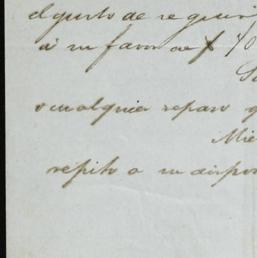 el gusto de
a su favor de $ 70
o cualquier reparo q
Mie
repito a su dispo